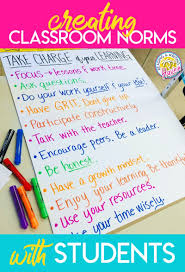 creating
CLASSROOM NORMS
TAKE CHARGE of your LEARNING
Focus → lessons & work time.
Ask questions.
Do your work yourself & your best!
Have GRIT. Don't give up.
Participate constructively.
Talk with the teacher.
Encourage peers. Be a leader.
Be honest.
Have a growth mindset.
Enjoy your learning. Be thankful
Use your resources.
Use your time wisely.
with STUDENTS